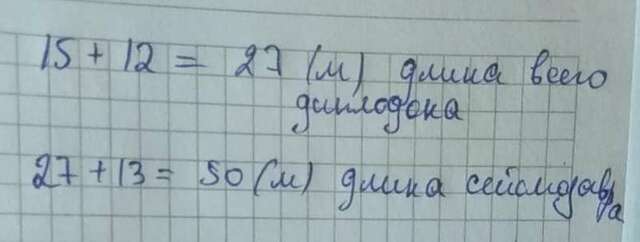 15 + 12 = 27 (м) длина всего
диплодока
27 + 13 = 50 (м) длина сейсмозавра